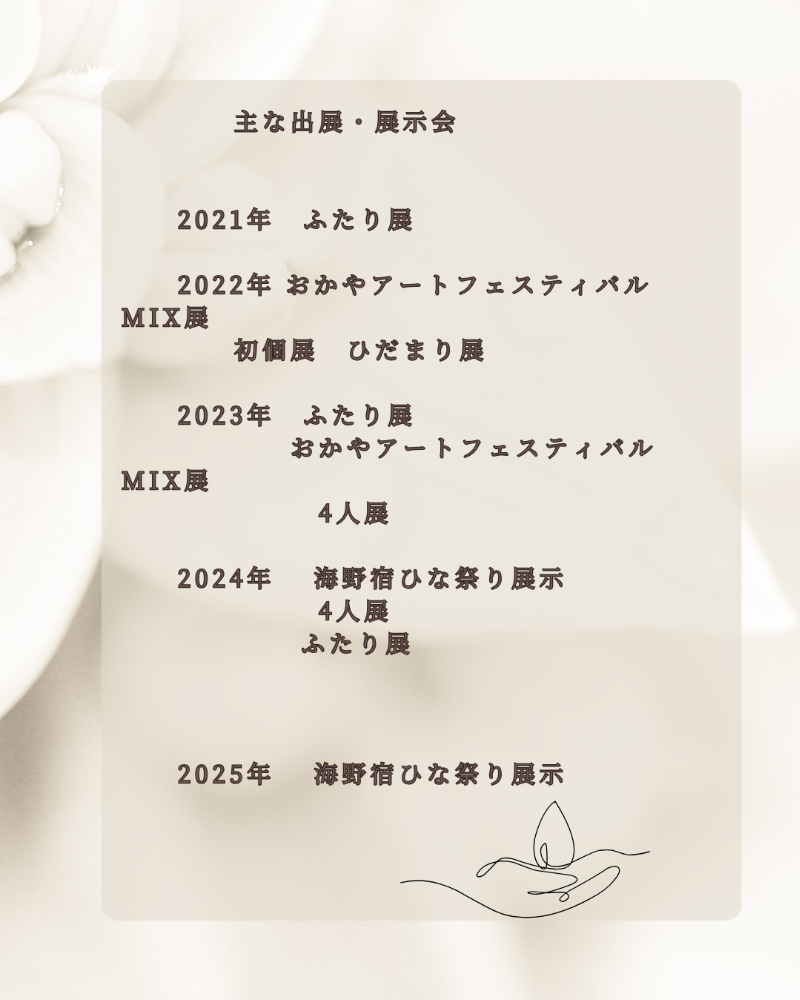 主な出展・展示会
2021年　ふたり展
2022年 おかやアートフェスティバル
MIX展
初個展　ひだまり展
2023年　ふたり展
おかやアートフェスティバル
MIX展
4人展
2024年　海野宿ひな祭り展示
4人展
ふたり展
2025年　海野宿ひな祭り展示